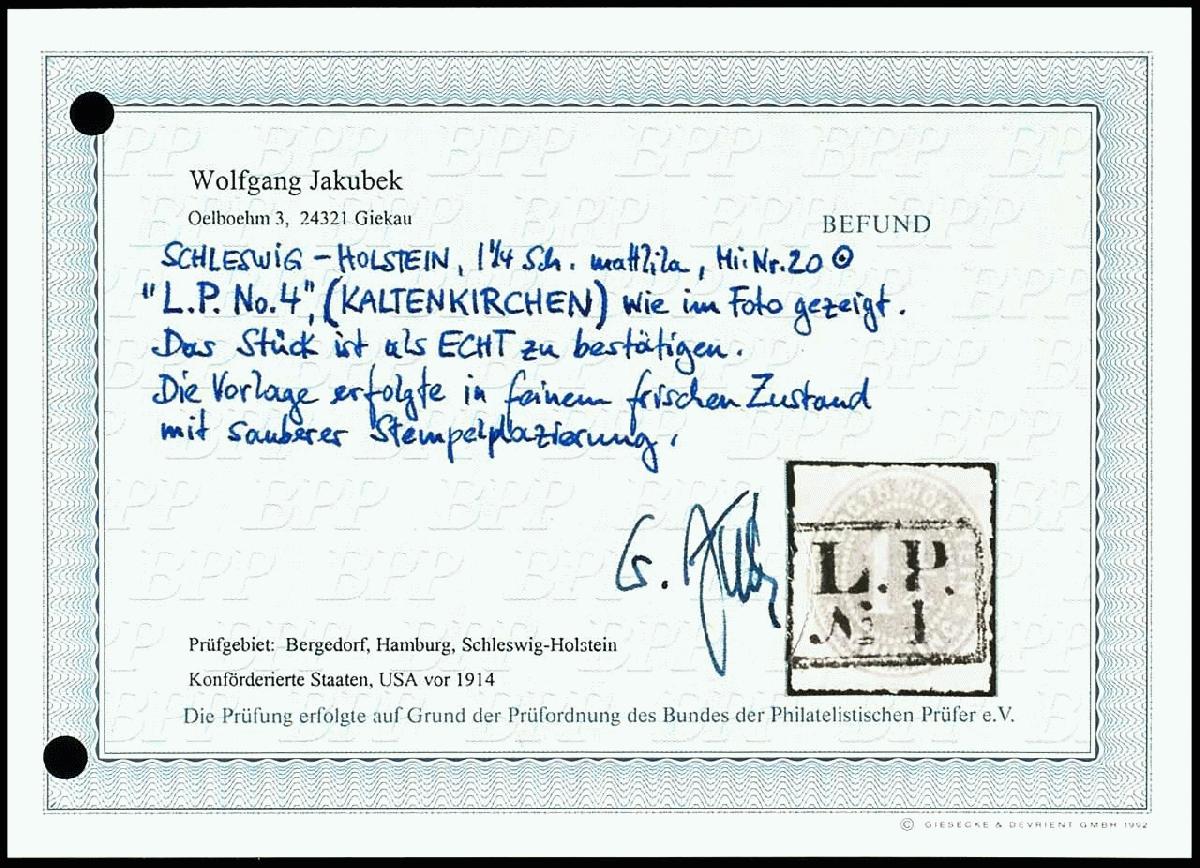 Wolfgang Jakubek
Oelboehm 3, 24321 Giekau
BEFUND
SCHLESWIG - HOLSTEIN, 1 1/4 Sch. mattlila, Mi.Nr. 20 ⊙
"L.P. No. 4", (KALTENKIRCHEN) wie im Foto gezeigt.
Das Stück ist als ECHT zu bestätigen.
Die Vorlage erfolgte in feinem frischen Zustand
mit sauberer Stempelplazierung.
L.P.
Prüfgebiet: Bergedorf, Hamburg, Schleswig-Holstein
Konförderierte Staaten, USA vor 1914
Die Prüfung erfolgte auf Grund der Prüfordnung des Bundes der Philatelistischen Prüfer e.V.
© GIESECKE & DEVRIENT GMBH 1992